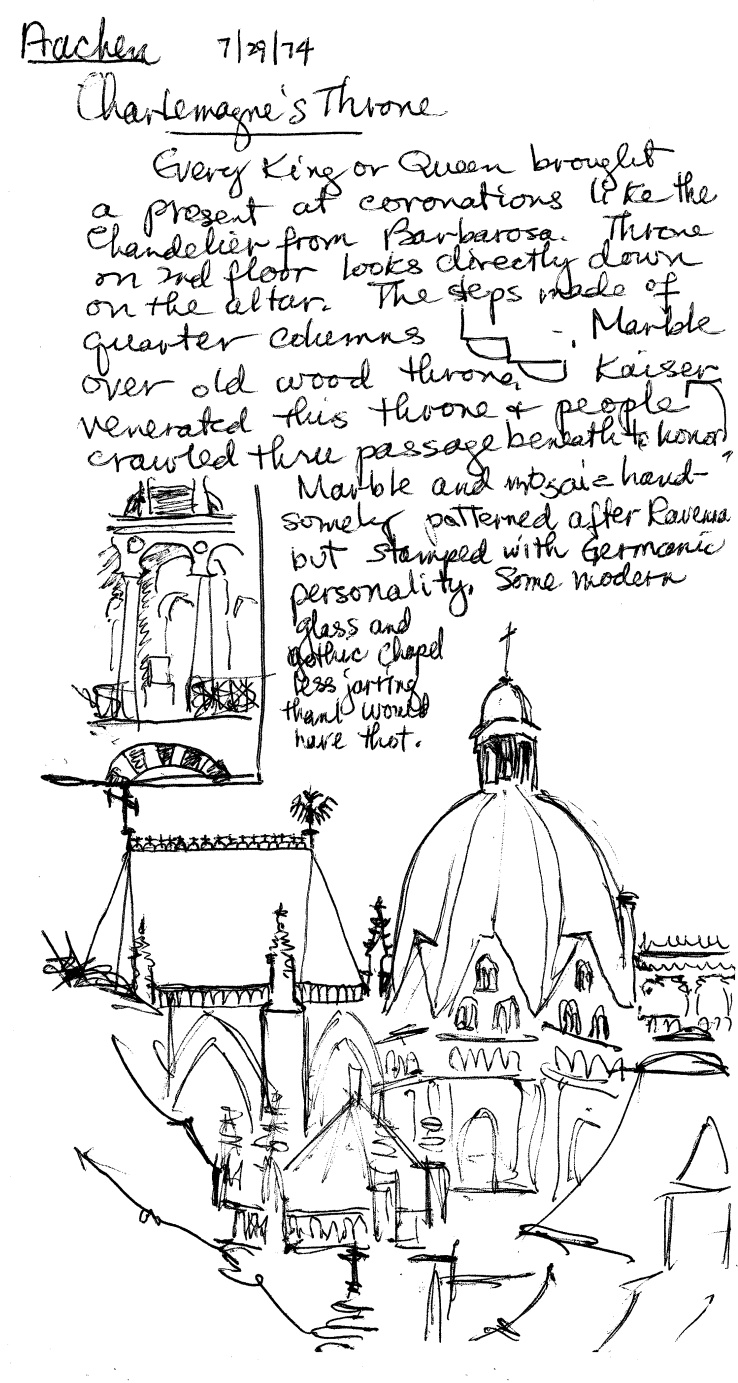 Aachen 7/29/74
Charlemagne's Throne
Every King or Queen brought
a present at coronations like the
Chandelier from Barbarosa. Throne
on 2nd floor looks directly down
on the altar. The steps made of
quarter columns . Marble
over old wood throne. Kaiser
venerated this throne & people
crawled thru passage beneath to honor
Marble and mosaic hand-
somely patterned after Ravenna
but stamped with Germanic
personality. Some modern
glass and
gothic chapel
less jarring
than I would
have thot.